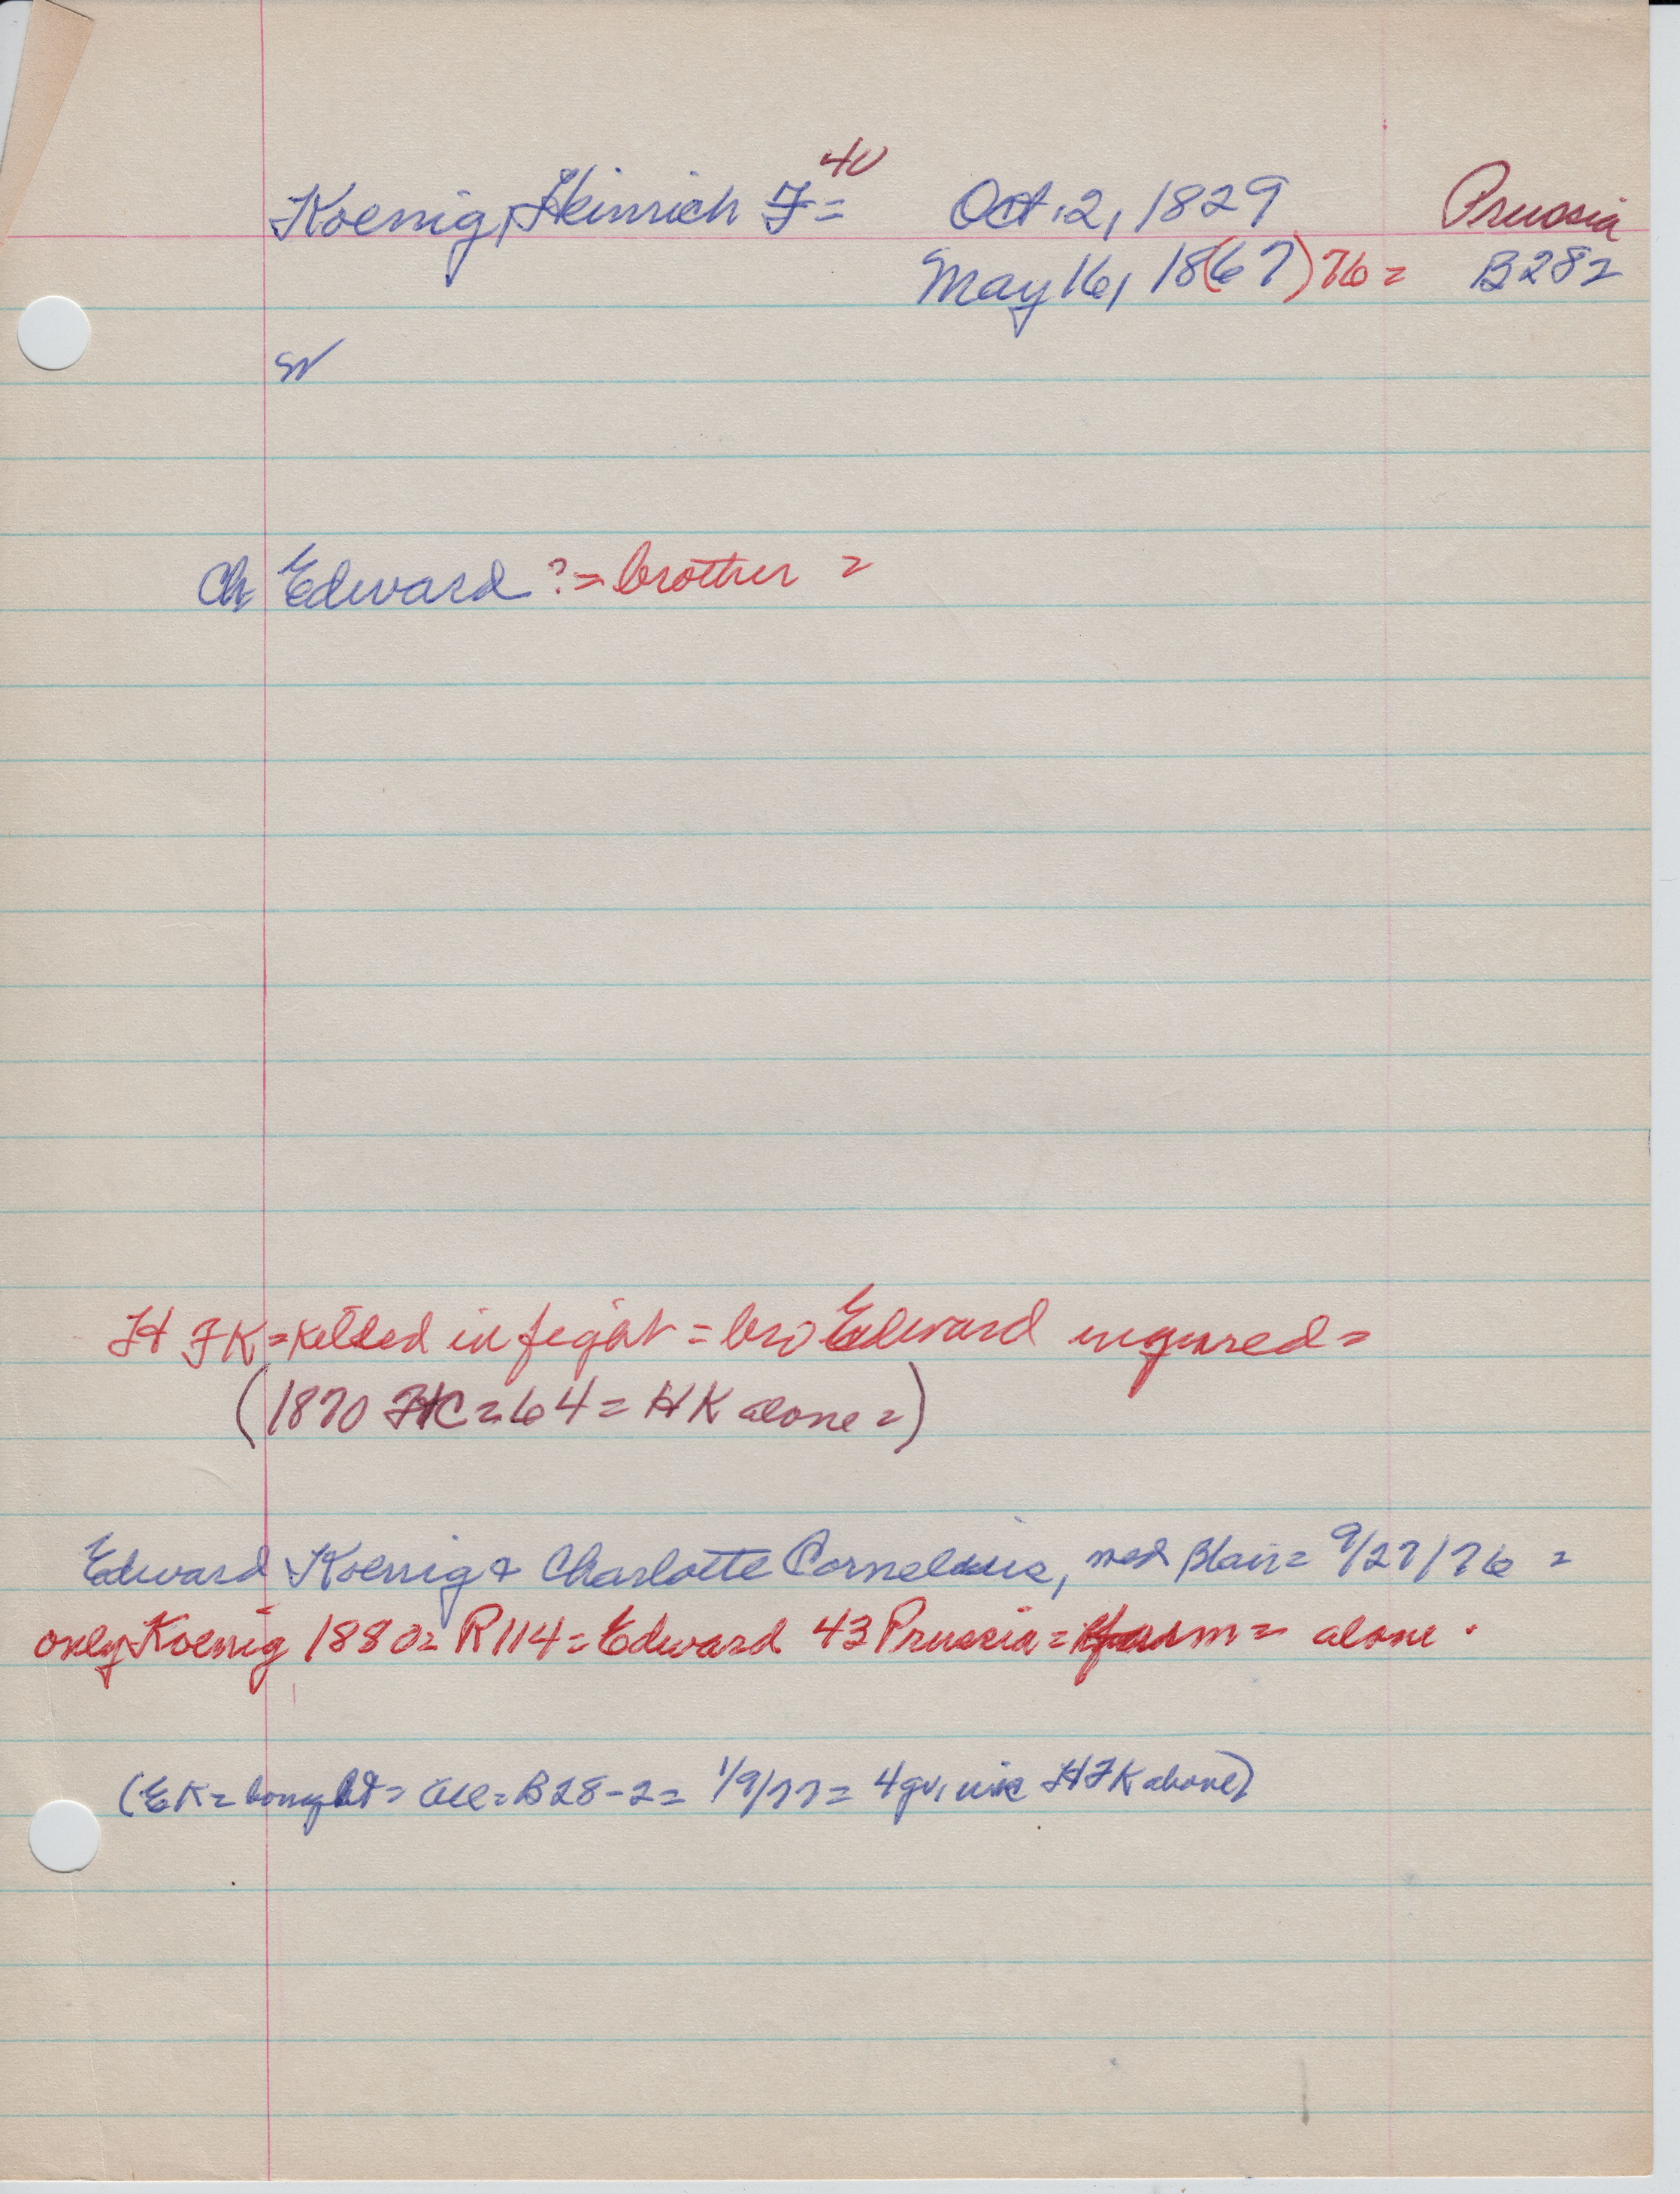 40
Koenig, Heinrich F= Oct. 2, 1829 Prussia
May 16, 18(67) 76= B282
W
Ch Edward ?= brother =
H FK= killed in fight = bro Edward injured=
(1870 FC=64= HK alone=)
Edward Koenig & Charlotte Cornelius, med Blair= 9/27/76 =
only Koenig 1880= R114= Edward 43 Prussia= farm= alone.
(EK= bought= all= B28-2= 1/9/77= 4 gr, HFK above)